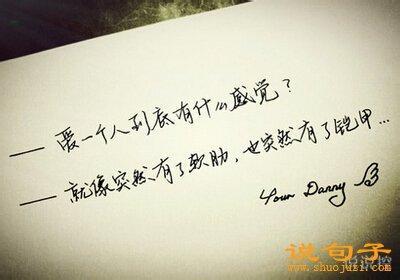 —— 爱一个人到底有什么感觉？
—— 就像突然有了软肋，也突然有了铠甲…
Your Danny
说句子
www.shuojuzi.com